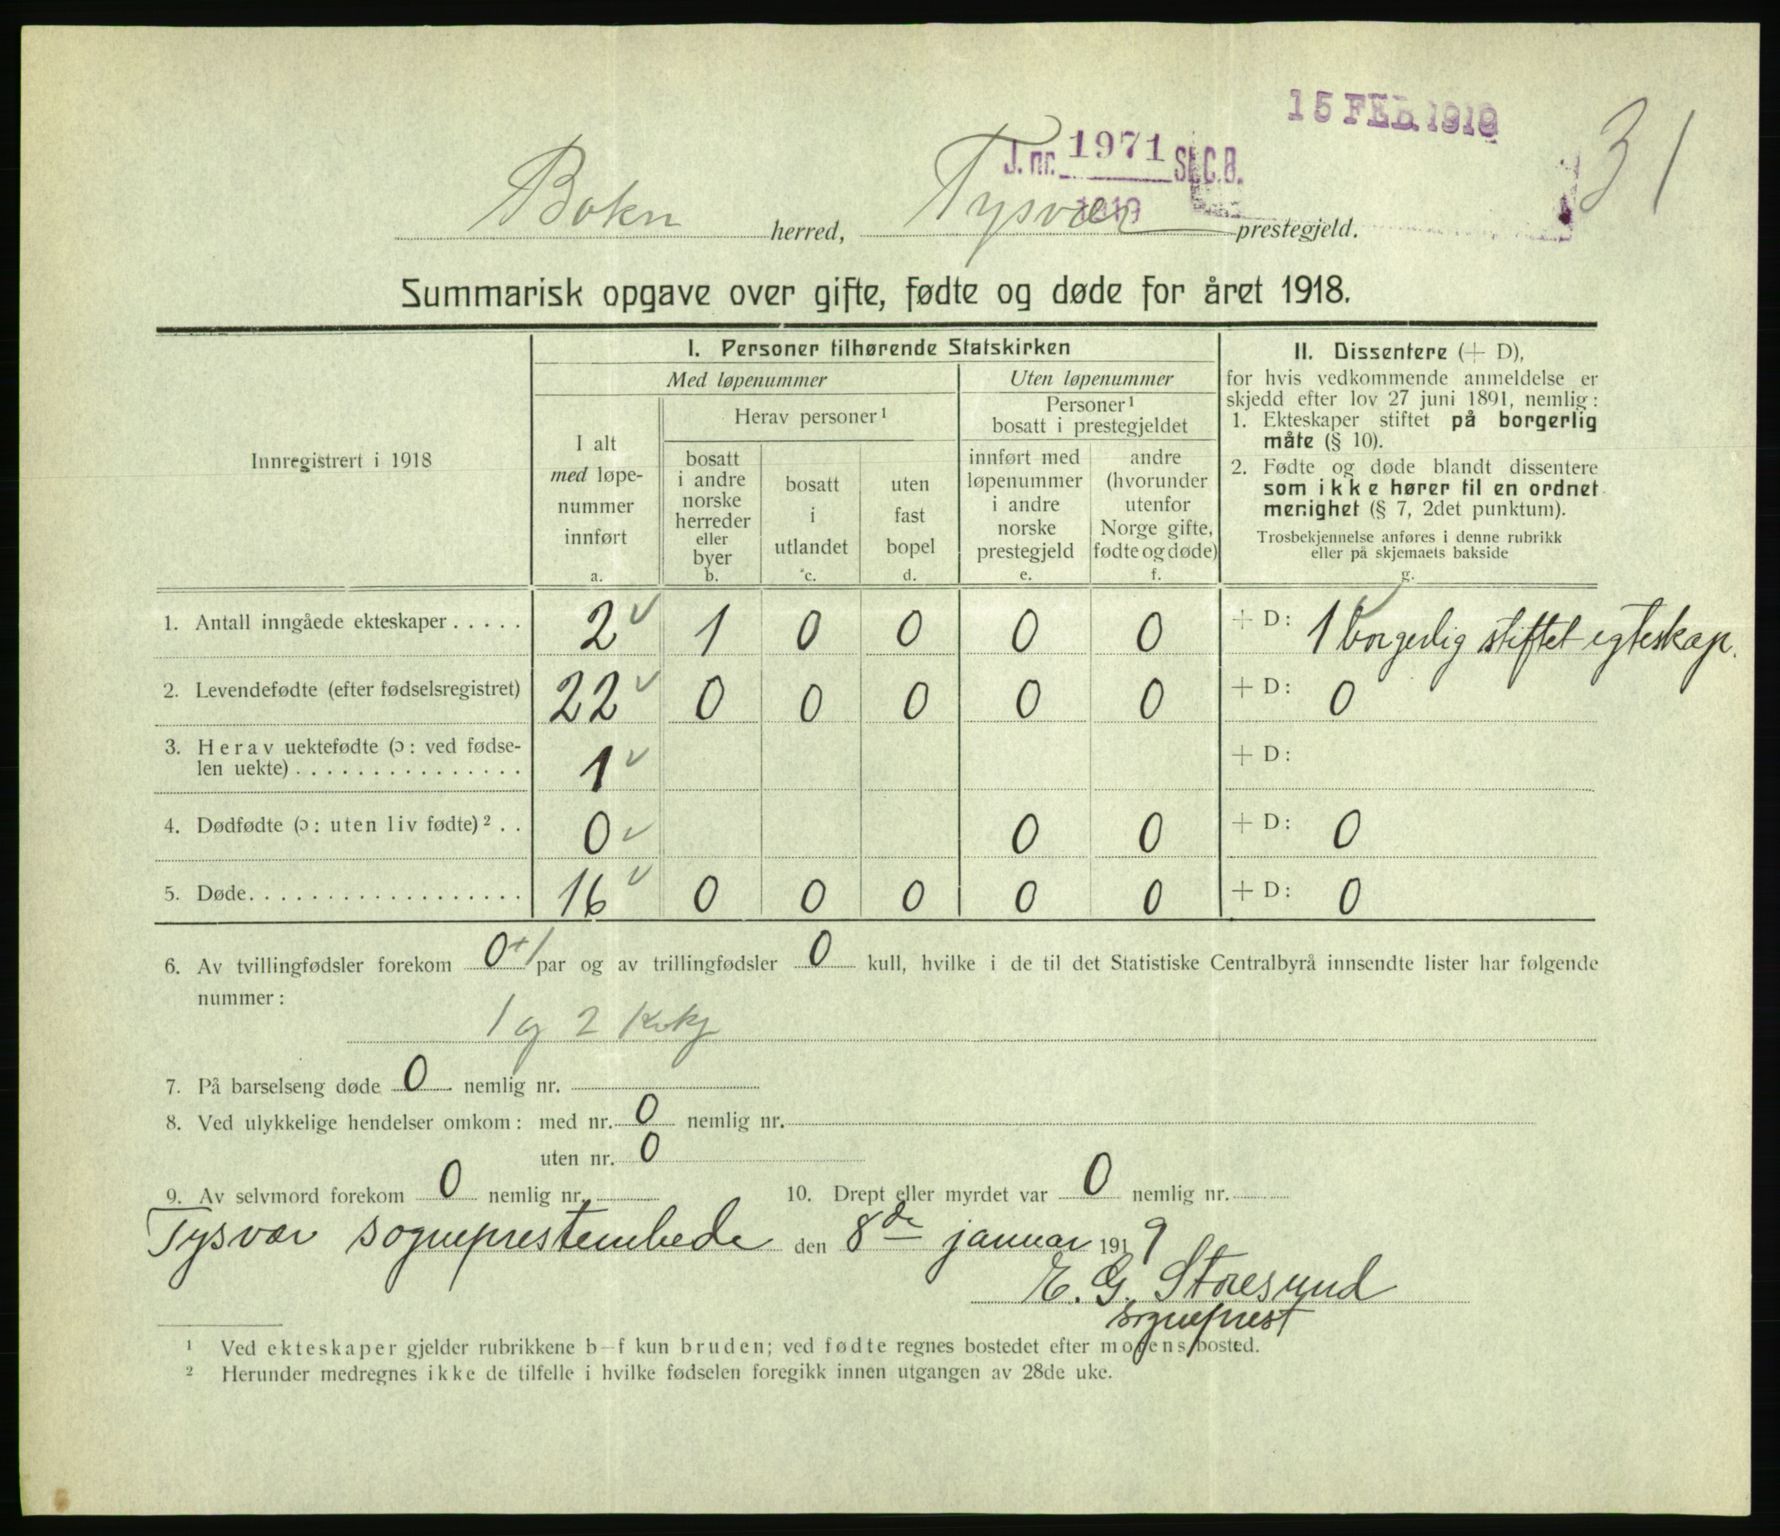 15 FEB. 1919
31
J. nr. 1971 St.C.B.
1919
Bokn herred, Tysvær prestegjeld.
Summarisk opgave over gifte, fødte og døde for året 1918.
Innregistrert i 1918
I. Personer tilhørende Statskirken
Med løpenummer
Uten løpenummer
I alt
med løpe-
nummer
innført
a.
Herav personer¹
bosatt
i andre
norske
herreder
eller
byer
b.
bosatt
i
utlandet
c.
uten
fast
bopel
d.
Personer¹
bosatt i prestegjeldet
innført med
løpenummer
i andre
norske
prestegjeld
e.
andre
(hvorunder
utenfor
Norge gifte,
fødte og døde)
f.
II. Dissentere (+ D),
for hvis vedkommende anmeldelse er
skjedd efter lov 27 juni 1891, nemlig:
1. Ekteskaper stiftet på borgerlig
måte (§ 10).
2. Fødte og døde blandt dissentere
som ikke hører til en ordnet
menighet (§ 7, 2det punktum).
Trosbekjennelse anføres i denne rubrikk
eller på skjemaets bakside
g.
1. Antall inngåede ekteskaper ..... 2 1 0 0 0 0 + D: 1 borgerlig stiftet egteskap.
2. Levendefødte (efter fødselsregistret) 22 0 0 0 0 0 + D: 0
3. Herav uektefødte (ɔ: ved fødse-
len uekte) ............... 1 + D:
4. Dødfødte (ɔ: uten liv fødte)² .. 0 0 0 + D: 0
5. Døde.................. 16 0 0 0 0 0 + D: 0
6. Av tvillingfødsler forekom 0+1 par og av trillingfødsler 0 kull, hvilke i de til det Statistiske Centralbyrå innsendte lister har følgende
nummer:
1 og 2 Kvkj
7. På barselseng døde 0 nemlig nr.
8. Ved ulykkelige hendelser omkom: med nr. 0 nemlig nr.
uten nr. 0
9. Av selvmord forekom 0 nemlig nr. 10. Drept eller myrdet var 0 nemlig nr.
Tysvær sogneprestembede den 8de januar 1919
E. G. Storesund
sogneprest
¹ Ved ekteskaper gjelder rubrikkene b–f kun bruden; ved fødte regnes bostedet efter morens bosted.
² Herunder medregnes ikke de tilfelle i hvilke fødselen foregikk innen utgangen av 28de uke.